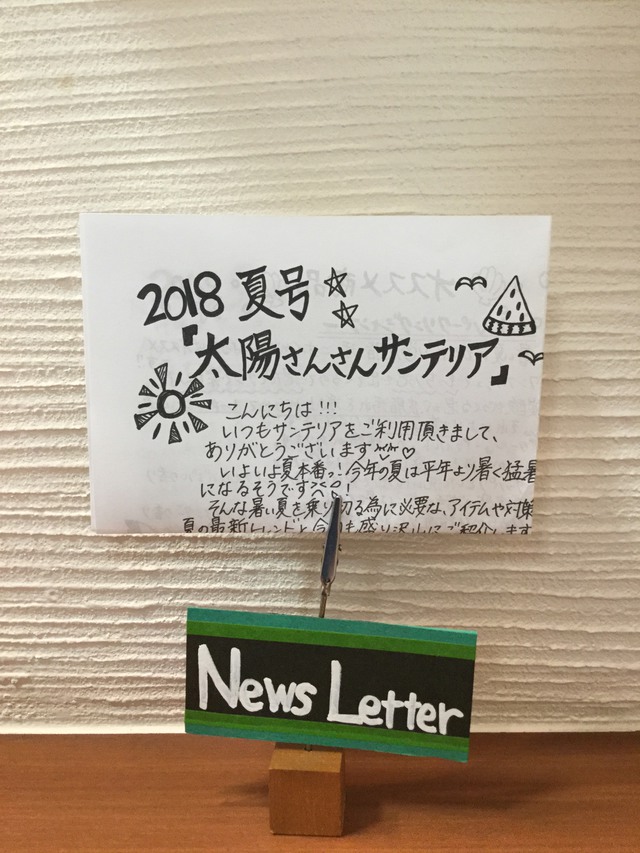 2018 夏号
『太陽さんさんサンテリア』
こんにちは!!!
いつもサンテリアをご利用頂きまして、
ありがとうございます
いよいよ夏本番っ!今年の夏は平年より暑く猛暑
になるそうです
そんな暑い夏を乗り切る為に必要な、アイテムや対策
夏の最新トレンドと今回も盛り沢山にご紹介します
News Letter